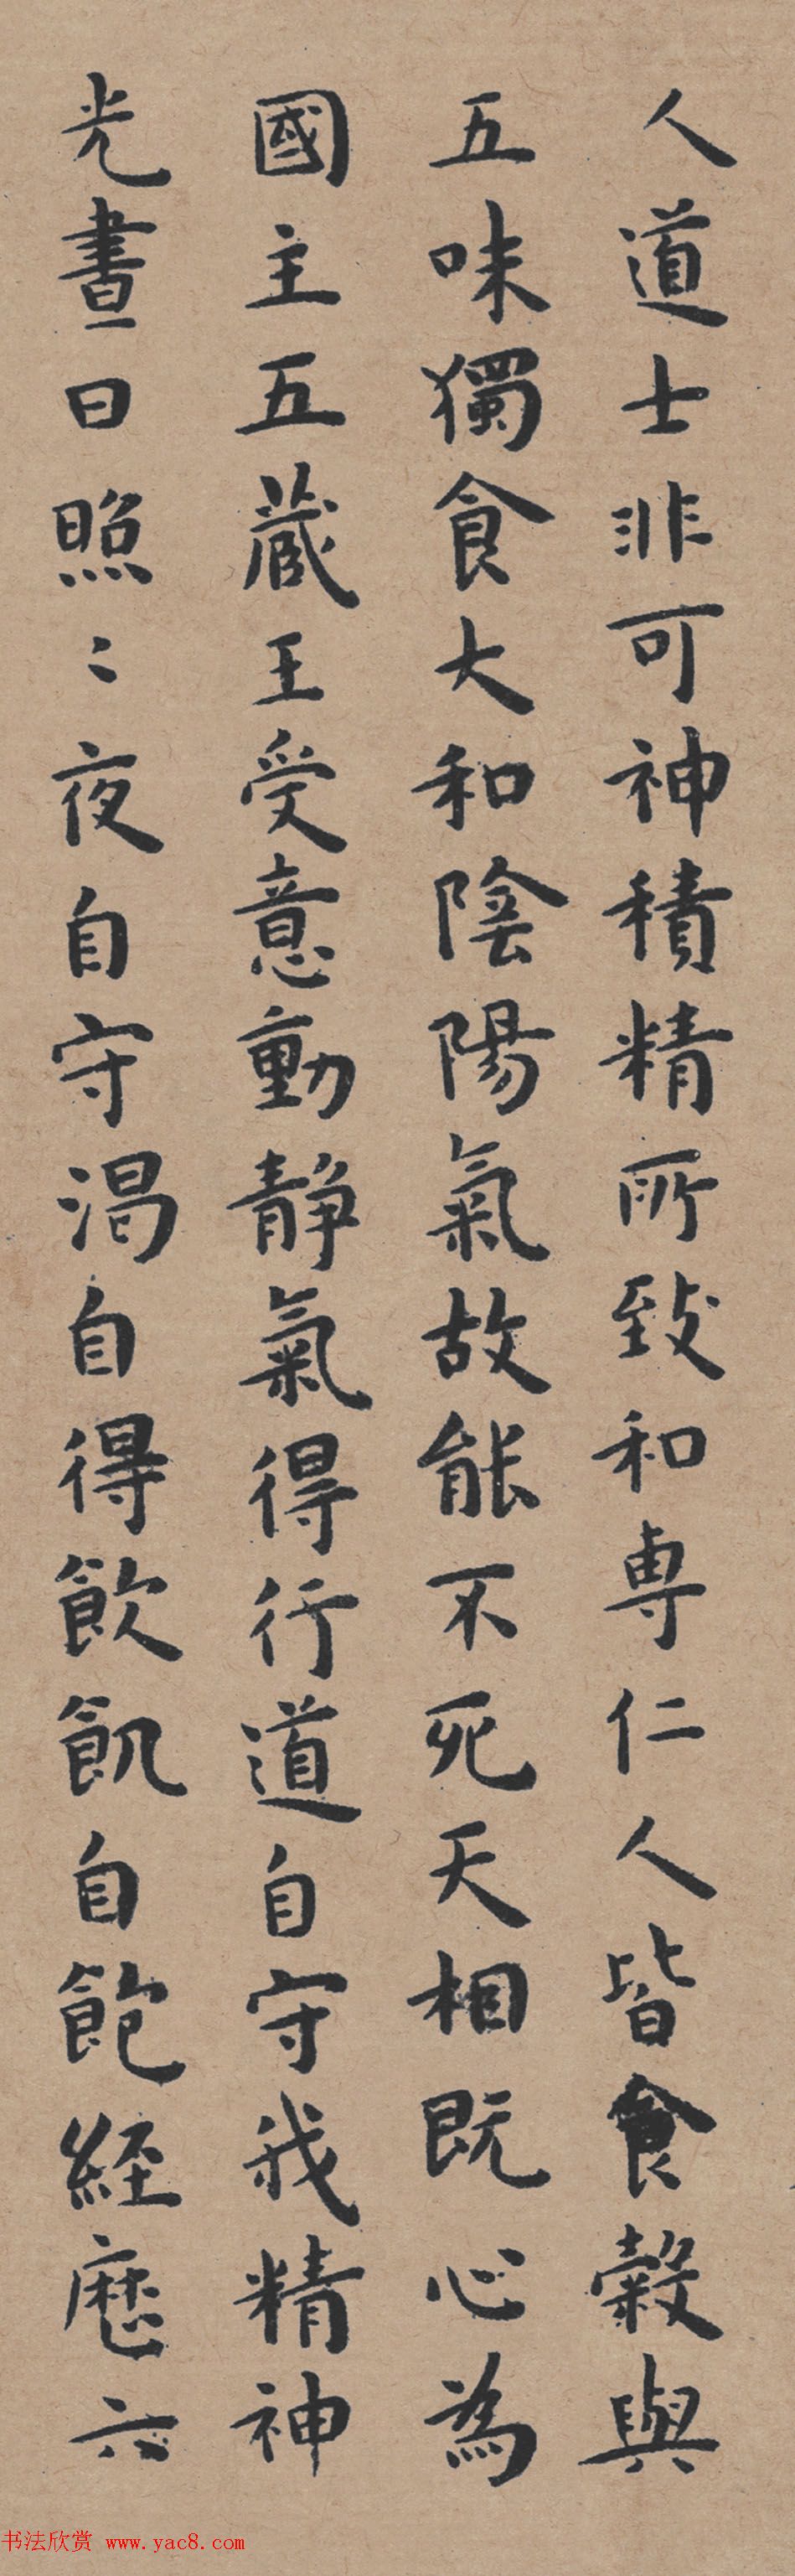 人道士非可神積精所致和專仁人皆食穀與
五味獨食大和陰陽氣故能不死天相既心為
國主五藏王受意動静氣得行道自守我精神
光晝日照〻夜自守渴自得飲飢自飽經歷六
书法欣赏 www.yac8.com